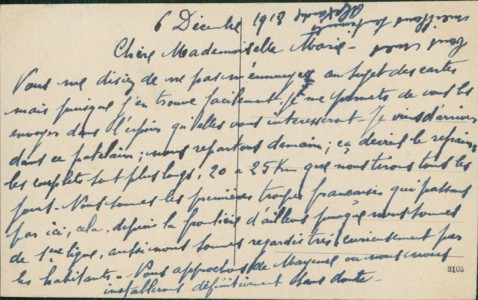 6 Décembre 1918
Chère Mademoiselle Marie -
Vous me disiez de ne pas m'ennuyer au sujet des cartes
mais puisque j'en trouve facilement, je me permets de vous les
envoyer dans l'espoir qu'elles vous intéresseront. Je viens d'arriver
dans ce patelain ; nous repartons demain ; ça devient le refrain
les couplets sont plus longs, 20 à 25 Km que nous tirons tous les
jours. Nous sommes les premières troupes françaises qui passons
par ici, cela depuis la frontière d'ailleurs puisque nous sommes
de 1ère ligne, aussi nous sommes regardés très curieusement par
les habitants - Nous approchons de Mayence où nous nous
installerons définitivement sans doute -
3105